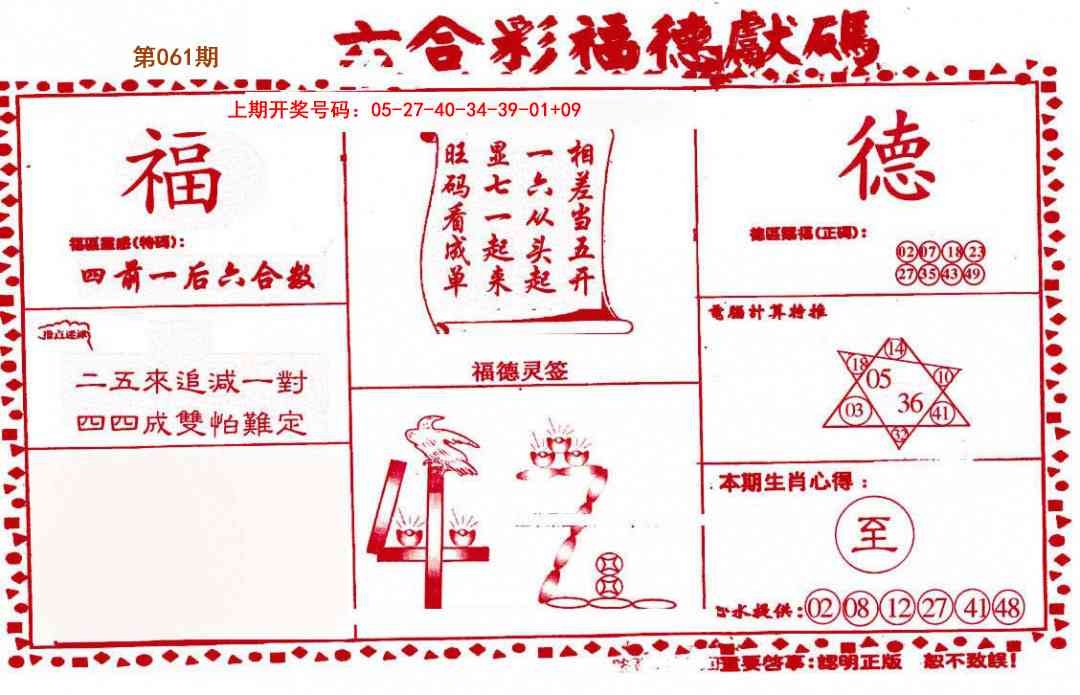 六合彩福德獻碼
第061期
上期开奖号码：05-27-40-34-39-01+09
福
福區靈感(特碼)：
四前一后六合数
相差当五开
一六从头起
显七一起来
旺码看成单
福德灵签
德
德區賜福(正碼)：
02 07 18 23
27 35 43 49
二五來追減一對
四四成雙怕難定
電腦計算特推
14
18 05 10
03 36 41
32
42
本期生肖心得：
至
心水提供：02 08 12 27 41 48
重要啓事：認明正版 恕不致誤！